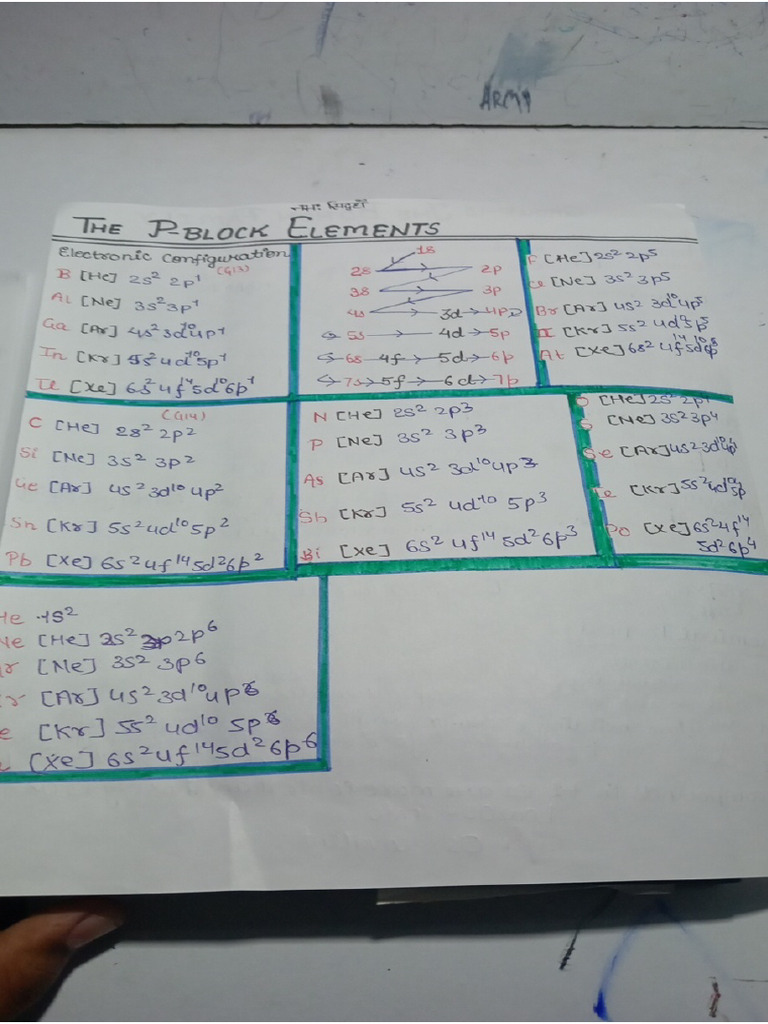 ARMY
THE P-BLOCK ELEMENTS
Electronic Configuration
(G13)
B [He] 2s² 2p¹
Al [Ne] 3s² 3p¹
Ga [Ar] 4s² 3d¹⁰ 4p¹
In [Kr] 5s² 4d¹⁰ 5p¹
[Xe] 6s² 4f¹⁴ 5d¹⁰ 6p¹
1s
2s 2p
3s 3p
4s 3d 4p
5s 4d 5p
6s 4f 5d 6p
7s 5f 6d 7p
F [He] 2s² 2p⁵
[Ne] 3s² 3p⁵
Br [Ar] 4s² 3d¹⁰ 4p⁵
I [Kr] 5s² 4d¹⁰ 5p⁵
At [Xe] 6s² 4f¹⁴ 5d¹⁰ 6p⁵
(G14)
C [He] 2s² 2p²
Si [Ne] 3s² 3p²
Ge [Ar] 4s² 3d¹⁰ 4p²
Sn [Kr] 5s² 4d¹⁰ 5p²
Pb [Xe] 6s² 4f¹⁴ 5d² 6p²
N [He] 2s² 2p³
P [Ne] 3s² 3p³
As [Ar] 4s² 3d¹⁰ 4p³
Sb [Kr] 5s² 4d¹⁰ 5p³
Bi [Xe] 6s² 4f¹⁴ 5d² 6p³
O [He] 2s² 2p⁴
S [Ne] 3s² 3p⁴
Se [Ar] 4s² 3d¹⁰ 4p⁴
Te [Kr] 5s² 4d¹⁰ 5p
Po [Xe] 6s² 4f¹⁴
5d² 6p⁴
He 1s²
Ne [He] 2s² 2p⁶
[Ne] 3s² 3p⁶
[Ar] 4s² 3d¹⁰ 4p⁶
[Kr] 5s² 4d¹⁰ 5p⁶
[Xe] 6s² 4f¹⁴ 5d² 6p⁶